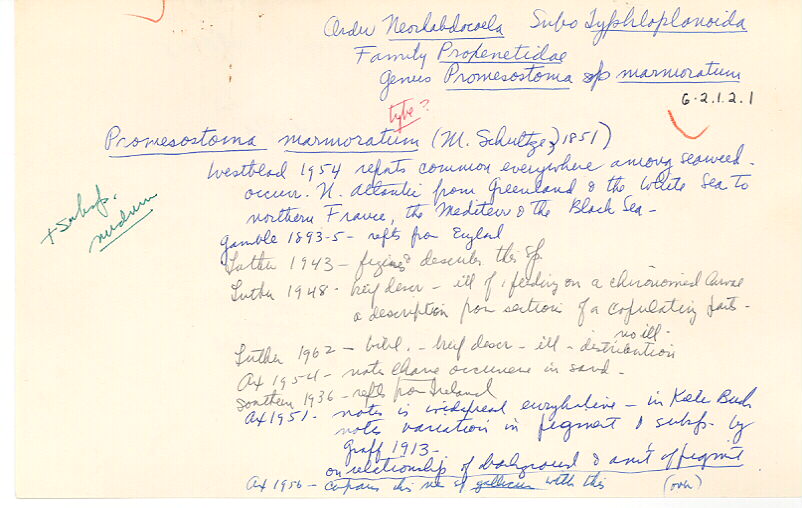 Order Neorhabdocoela Subo Typhloplanoida
Family Proxenetidae
Genus Promesostoma sp marmoratum
G-2.1.2.1
type?
Promesostoma marmoratum (M. Schultze, 1851)
Westblad 1954 repts common everywhere among seaweed.
occurr. N. Atlantic from Greenland & the White Sea to
northern France, the Mediterr & the Black Sea -
+ subsp.
nudum
Gamble 1893-5 - repts from England
Luther 1943 - figures & describes this sp.
Luther 1948 - brief descr - ill of feeding on a chironomid larvae
a description from sections of a copulating parts -
no ill -
Luther 1962 - bibl. - brief descr - ill - distribution
Ax 1954 - notes occurrence in sand -
Southern 1936 - repts from Ireland
Ax 1951 - notes is widespread euryhaline - in Kiele Bucht
notes variation in pigment & subsp. by
Graff 1913 -
on relationship of background & am't of pigmt
Ax 1956 - compares his n. sp gallicum with this (over)